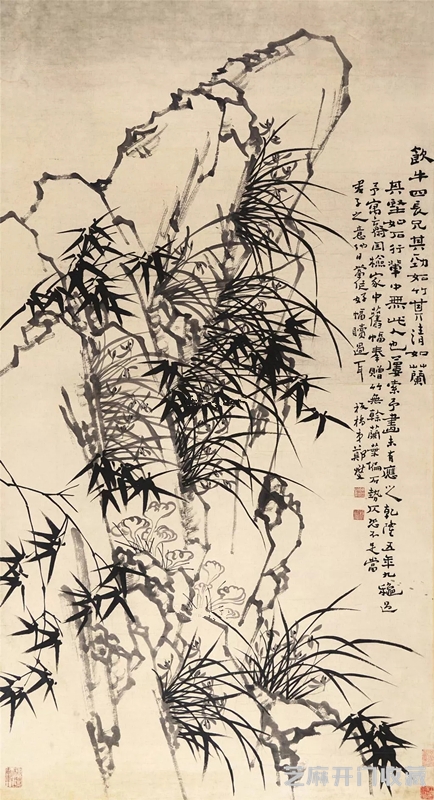 歙牛四長兄其勁如竹其清如蘭
其堅如石行輩中無此人也屢索予畫未有應之乾隆五年九穐過
予寓齋因檢家中舊幅奉贈竹無榦蘭葉偏石勢仄恐不足當
君子之意他日當作好幅贖過耳
板橋弟鄭燮
芝麻开门收藏